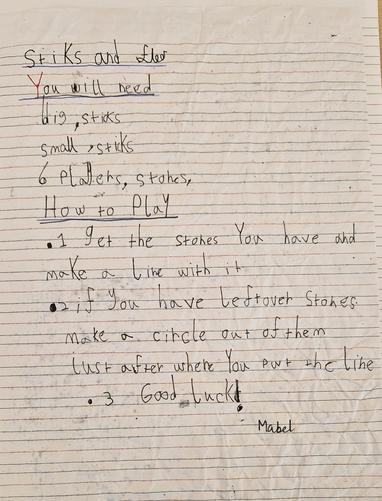 Stiks and
You will need
big, stiks
small, stiks
6 Players, stones,
How to Play
.1 get the stones You have and
make a Line with it
.2, if You have Leftover Stones.
make a circle out of them
Just after where You put the Line
.3 Good Luck!
Mabel